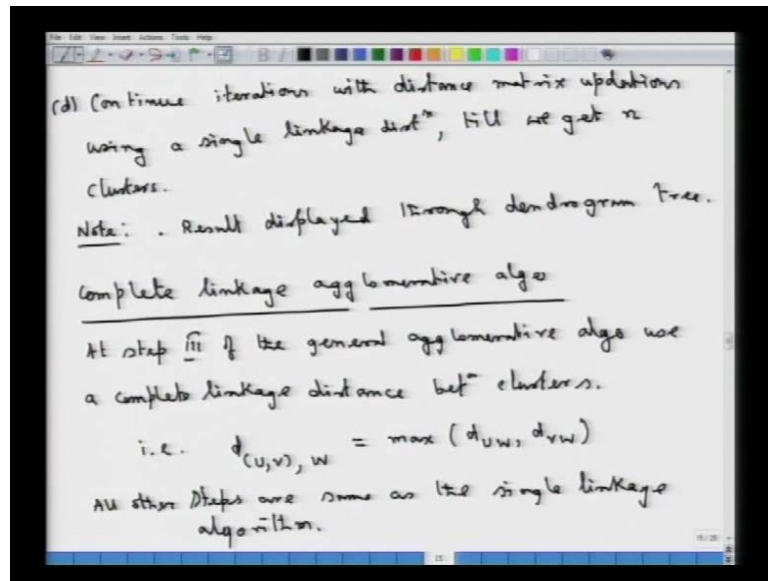 File Edit View Insert Actions Tools Help
(d) Continue iterations with distance matrix updations
using a single linkage distⁿ, till we get n
clusters.
Note: . Result displayed through dendrogram tree.
Complete linkage agglomerative algo
At step iii of the general agglomerative algo use
a complete linkage distance betⁿ clusters.
i.e. d(U,V), W = max (dUW, dVW)
All other steps are same as the single linkage
algorithm.
15